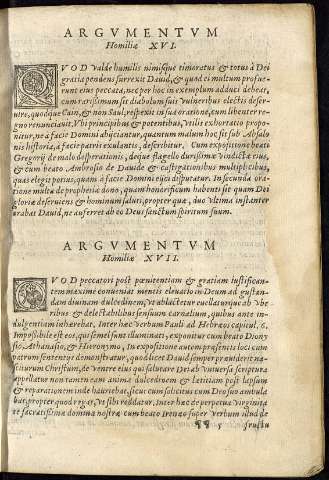 ARGVMENTVM
Homiliæ XVI.
QVOD valde humilis nimisque timoratus & totus à Dei
gratia pendens surrexit David, & quod ei multum profue-
runt eius peccata, nec per hoc in exemplum adduci debeat,
cum rarissimum sit diabolum suis vulneribus electis deser-
uire, quodque Cain, & non Saul, respexit in sua oratione, cum libenter re-
gno renunciauit. Vbi principibus & potentibus, vtilis exhortatio propo-
nitur, ne a facie Domini abijciantur, quantum malum hoc sit sub Absalo-
nis historia, à facie patris exulantis, describitur. Cum expositione beati
Gregorij de malo desperationis, deque flagello durissimæ vindictæ eius,
& cum beato Ambrosio de Dauide & castigationibus multiplicibus,
quas elegit potius, quam à facie Domini eijci disputatur. In secunda ora-
tione multa de prophetiæ dono, quam honorificum habenti sit quam Dei
gloriæ deseruiens & hominum saluti, propter quæ, duo vltima instanter
orabat Dauid, ne auferret ab eo Deus sanctum spiritum suum.
ARGVMENTVM
Homiliæ XVII.
QVOD peccatori post pœnitentiam & gratiam iustifican-
tem maxime conueniat mentis eleuatio in Deum ad gustan-
dam diuinam dulcedinem, vt ablactetur euellaturque ab vbe-
ribus & delectabilibus sensuum carnalium, quibus ante in-
dulgentiam inhærebat. Inter hæc verbum Pauli ad Hebræos capitul. 6.
Impossibile est eos, qui semel sunt illuminati, exponitur cum beato Diony-
sio, Athanasio, & Hieronymo, In expositione autem præsentis loci cum
patrum sententijs demonstratur, quod licet Dauid semper præuiderit na-
sciturum Christum, de ventre eius qui salutare Dei ab vniuersa scriptura
appellatur non tamen tam animæ dulcedinem & lætitiam post lapsum
& reparationem inde hauriebat, sicut cum solicitus cum Deo suo ambula-
bat, propter quod rogat, vt sibi reddatur. Inter hæc de perpetua virginita
te sacratissimæ dominæ nostræ cum beato Irenæo super verbum illud de
¶¶ 5 fructu